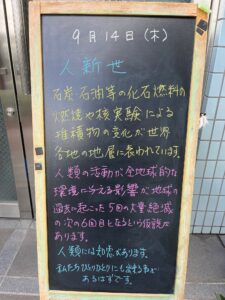 9月14日(木)
人新世
石炭・石油等の化石燃料の
燃焼や核実験による
堆積物の変化が世界
各地の地層に表われています。
人類の活動が全地球的な
環境に与える影響が地球の
過去に起こった5回の大量絶滅
の次の6回目となるという仮説が
あります。
人類には知恵があります。
私たちひとりひとりにも出来る事が
あるはずです。